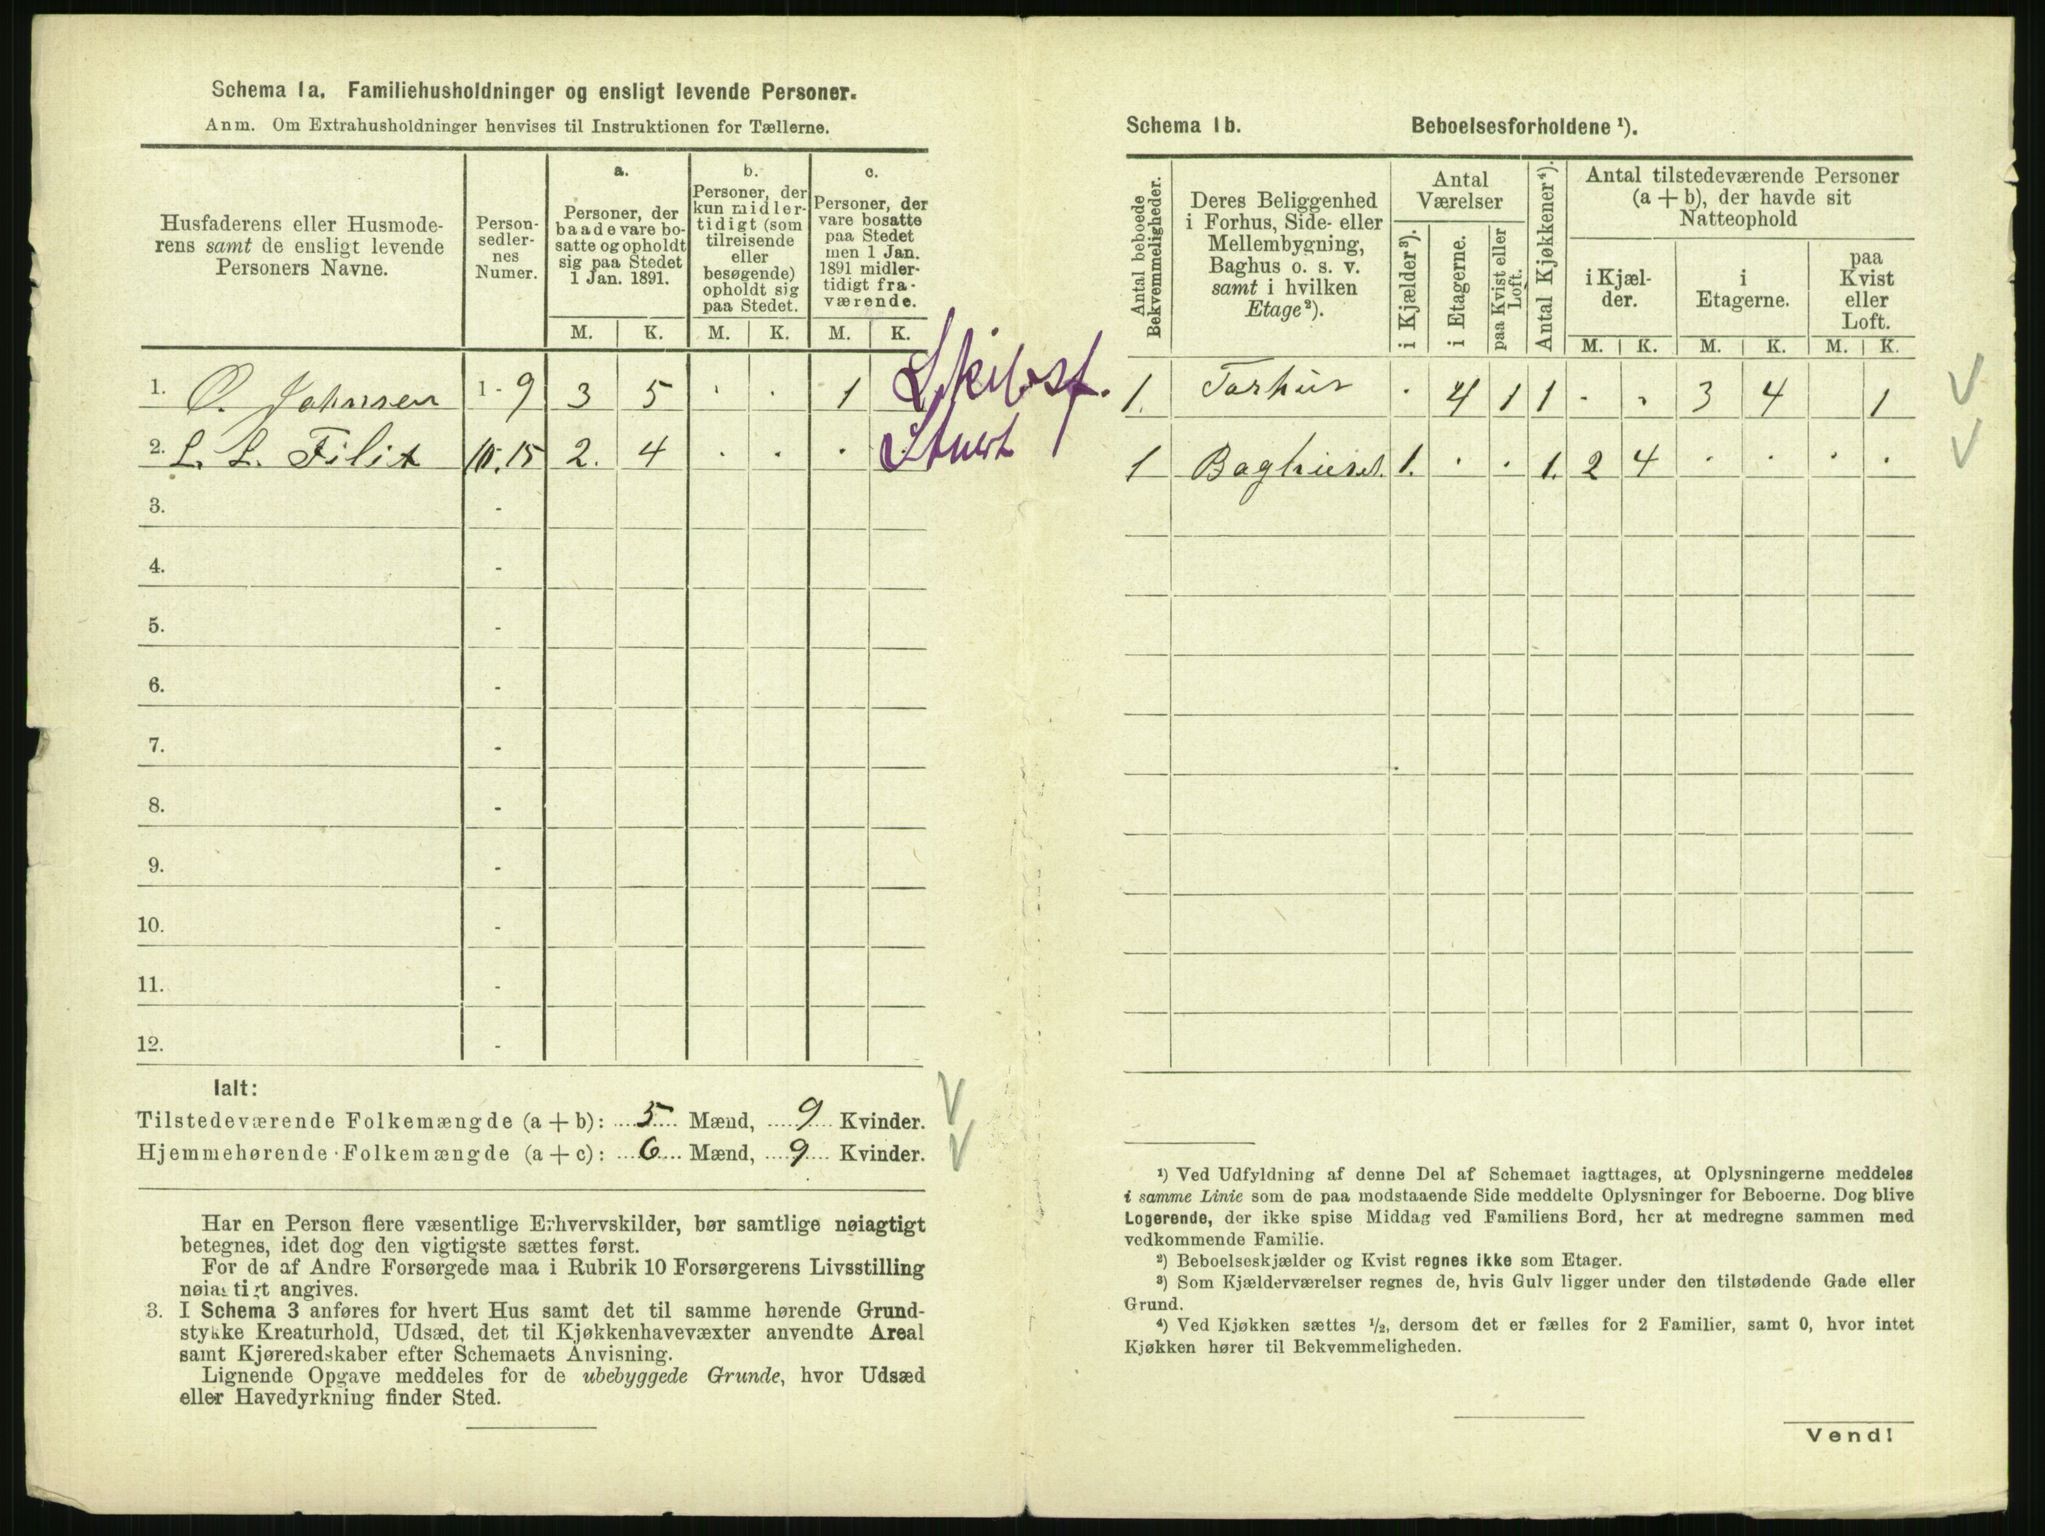 Schema 1a. Familiehusholdninger og ensligt levende Personer.
Anm. Om Extrahusholdninger henvises til Instruktionen for Tællerne.
Husfaderens eller Husmoderens samt de ensligt levende Personers Navne.
Personsedlernes Numer.
a. Personer, der baade vare bosatte og opholdt sig paa Stedet 1 Jan. 1891.
b. Personer, der kun midlertidigt (som tilreisende eller besøgende) opholdt sig paa Stedet.
c. Personer, der vare bosatte paa Stedet men 1 Jan. 1891 midlertidigt fraværende.
M. K. M. K. M. K.
1. O. Johnsen 1-9 3 5 . . 1
2. L. L. 10-15 2. 4 . . .
3. -
4. -
5. -
6. -
7. -
8. -
9. -
10. -
11. -
12. -
Ialt:
Tilstedeværende Folkemængde (a + b): 5 Mænd, 9 Kvinder.
Hjemmehørende Folkemængde (a + c): 6 Mænd, 9 Kvinder.
Har en Person flere væsentlige Erhvervskilder, bør samtlige nøiagtigt
betegnes, idet dog den vigtigste sættes først.
For de af Andre Forsørgede maa i Rubrik 10 Forsørgerens Livsstilling
nøiagtigt angives.
3. I Schema 3 anføres for hvert Hus samt det til samme hørende Grund-
stykke Kreaturhold, Udsæd, det til Kjøkkenhavevæxter anvendte Areal
samt Kjøreredskaber efter Schemaets Anvisning.
Lignende Opgave meddeles for de ubebyggede Grunde, hvor Udsæd
eller Havedyrkning finder Sted.
Schema 1b. Beboelsesforholdene ¹).
Antal beboede Bekvemmeligheder.
Deres Beliggenhed i Forhus, Side- eller Mellembygning, Baghus o. s. v. samt i hvilken Etage²).
Antal Værelser
i Kjælder³).
i Etagerne.
paa Kvist eller Loft.
Antal Kjøkkener⁴).
Antal tilstedeværende Personer (a + b), der havde sit Natteophold
i Kjælder.
i Etagerne.
paa Kvist eller Loft.
M. K. M. K. M. K.
1. Forhus . 4 1 1 . . 3 4 1
1 Baghuset 1. . . 1. 2 4 . . . .
¹) Ved Udfyldning af denne Del af Schemaet iagttages, at Oplysningerne meddeles
i samme Linie som de paa modstaaende Side meddelte Oplysninger for Beboerne. Dog blive
Logerende, der ikke spise Middag ved Familiens Bord, her at medregne sammen med
vedkommende Familie.
²) Beboelseskjælder og Kvist regnes ikke som Etager.
³) Som Kjælderværelser regnes de, hvis Gulv ligger under den tilstødende Gade eller
Grund.
⁴) Ved Kjøkken sættes ½, dersom det er fælles for 2 Familier, samt 0, hvor intet
Kjøkken hører til Bekvemmeligheden.
Vend!